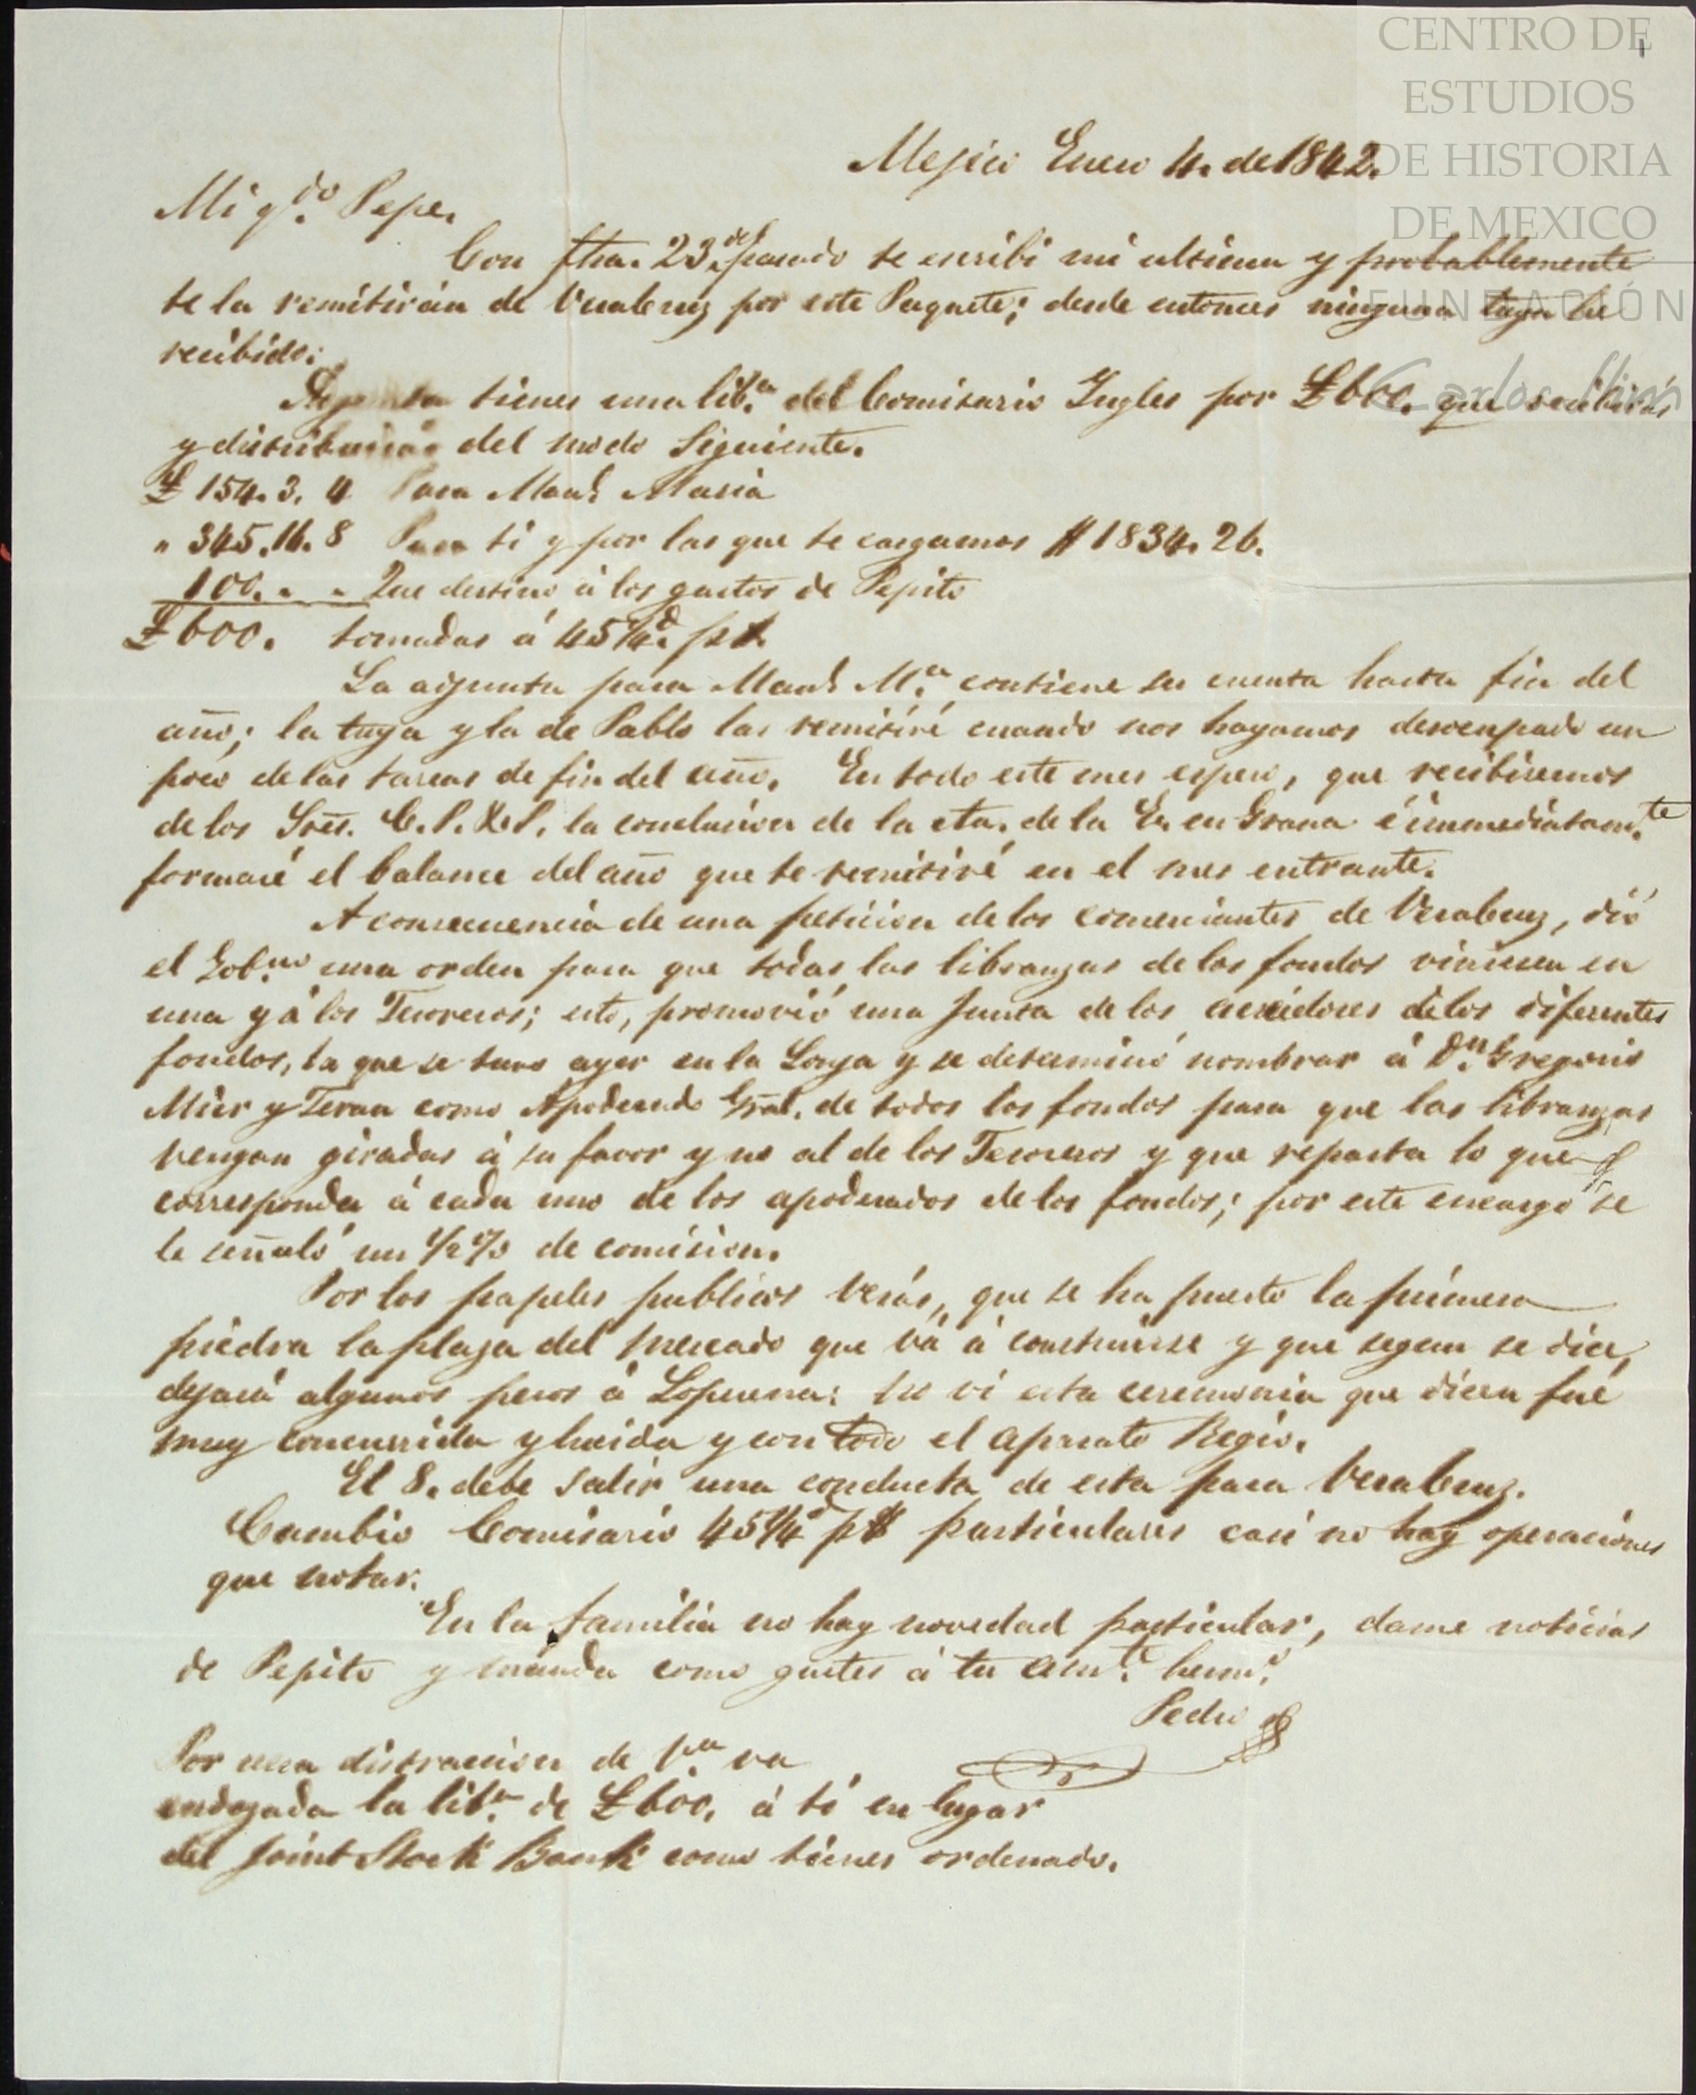 CENTRO DE
ESTUDIOS
DE HISTORIA
DE MEXICO
FUNDACIÓN
Carlos Slim
1
Mejico Enero 4. de 1842.
Mi qdo. Pepe.
Con fha. 23 del pasado te escribi mi ultima y probablemente
te la remitirán de VeraCruz por este Paquete; desde entonces ninguna tuya he
recibido:
Adjunta tienes una libza. del Comisario Ingles por £600. que recibirás
y distribuirás del modo siguiente.
£ 154. 3. 4 Para Manl. Maria
" 345. 16. 8 Para ti y por las que te cargamos $1834. 26.
100. " " Que destino á los gastos de Pepito
£600. tomadas á 45¼d. p$.
La adjunta para Manl. Ma. contiene su cuenta hasta fin del
año; la tuya y la de Pablo las remitiré cuando nos hayamos desocupado un
poco de las tareas de fin del año. En todo este mes espero, que recibiremos
de los Sres. C. P. & P. la conclusion de la cta. de la En. en Grana é inmediatamte.
formaré el balance del año que te remitiré en el mes entrante.
A consecuencia de una peticion de los comerciantes de VeraCruz, dió
el Gobno. una orden para que todas las libranzas de los fondos viniesen en
una y á los Tesoreros; esto, promovió una Junta de los acreédores de los diferentes
fondos, la que se tuvo ayer en la Lonja y se determinó nombrar á Dn. Gregorio
Mier y Teran como Apoderado Gral. de todos los fondos para que las libranzas
vengan giradas á su favor y no al de los Tesoreros y que reparta lo que
corresponda á cada uno de los apoderados de los fondos; por este encargo se
le señaló un ½ % de comision.
Por los papeles publicos verás, que se ha puesto la primera
piedra la plaza del mercado que vá á construirse y que segun se dice,
dejará algunos pesos á Loperena: no vi esta ceremonia que dicen fué
muy concurrida y lucida y con todo el aparato Regio.
El 8. debe salir una conducta de esta para VeraCruz.
Cambio Comisario 45¼d p$ particulares casi no hay operaciones
que notar.
En la familia no hay novedad particular, dame noticias
de Pepito y manda como gustes á tu amte. hermo.
Pedro
Por una distraccion de va
endozada la libza. de £600. á ti en lugar
del Joint Stock Bank como tienes ordenado.